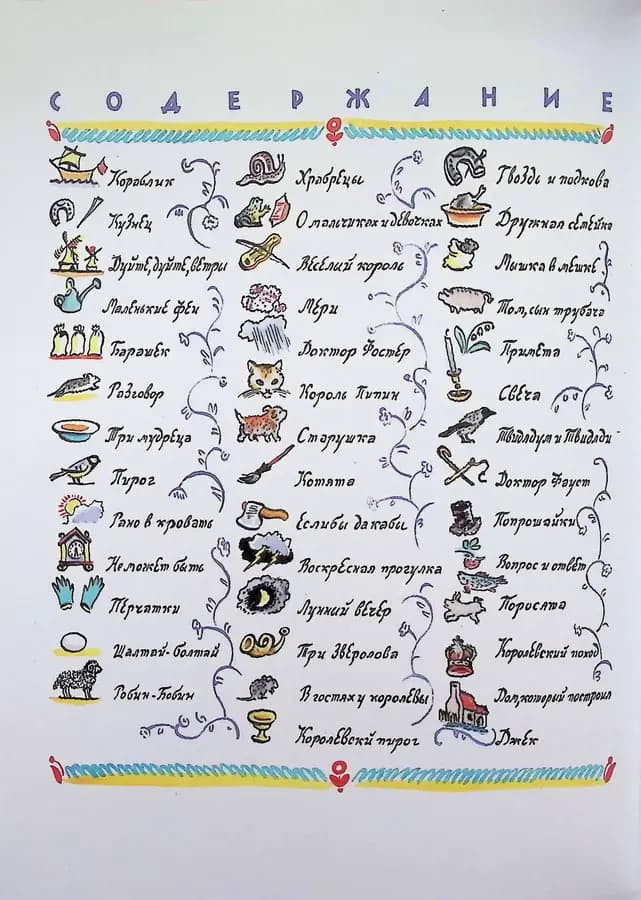 СОДЕРЖАНИЕ
Кораблик
Кузнец
Дуйте, дуйте, ветры
Маленькие феи
Барашек
Разговор
Три мудреца
Пирог
Рано в кровать
Не может быть
Перчатки
Шалтай-болтай
Робин-Бобин
Храбрецы
О мальчиках и девочках
Весёлый король
Мери
Доктор Фостер
Король Пипин
Старушка
Котята
Если бы да кабы
Воскресная прогулка
Лунный вечер
Три Зверолова
В гостях у королевы
Королевски пирог
Гвоздь и подкова
Дружная семейка
Мышка в мешке
Том, сын трубача
Примета
Свеча
Твидлдум и Твидлди
Доктор Фауст
Попрошайки
Вопрос и ответ
Поросята
Королевский поход
Дом, который построил
Джек